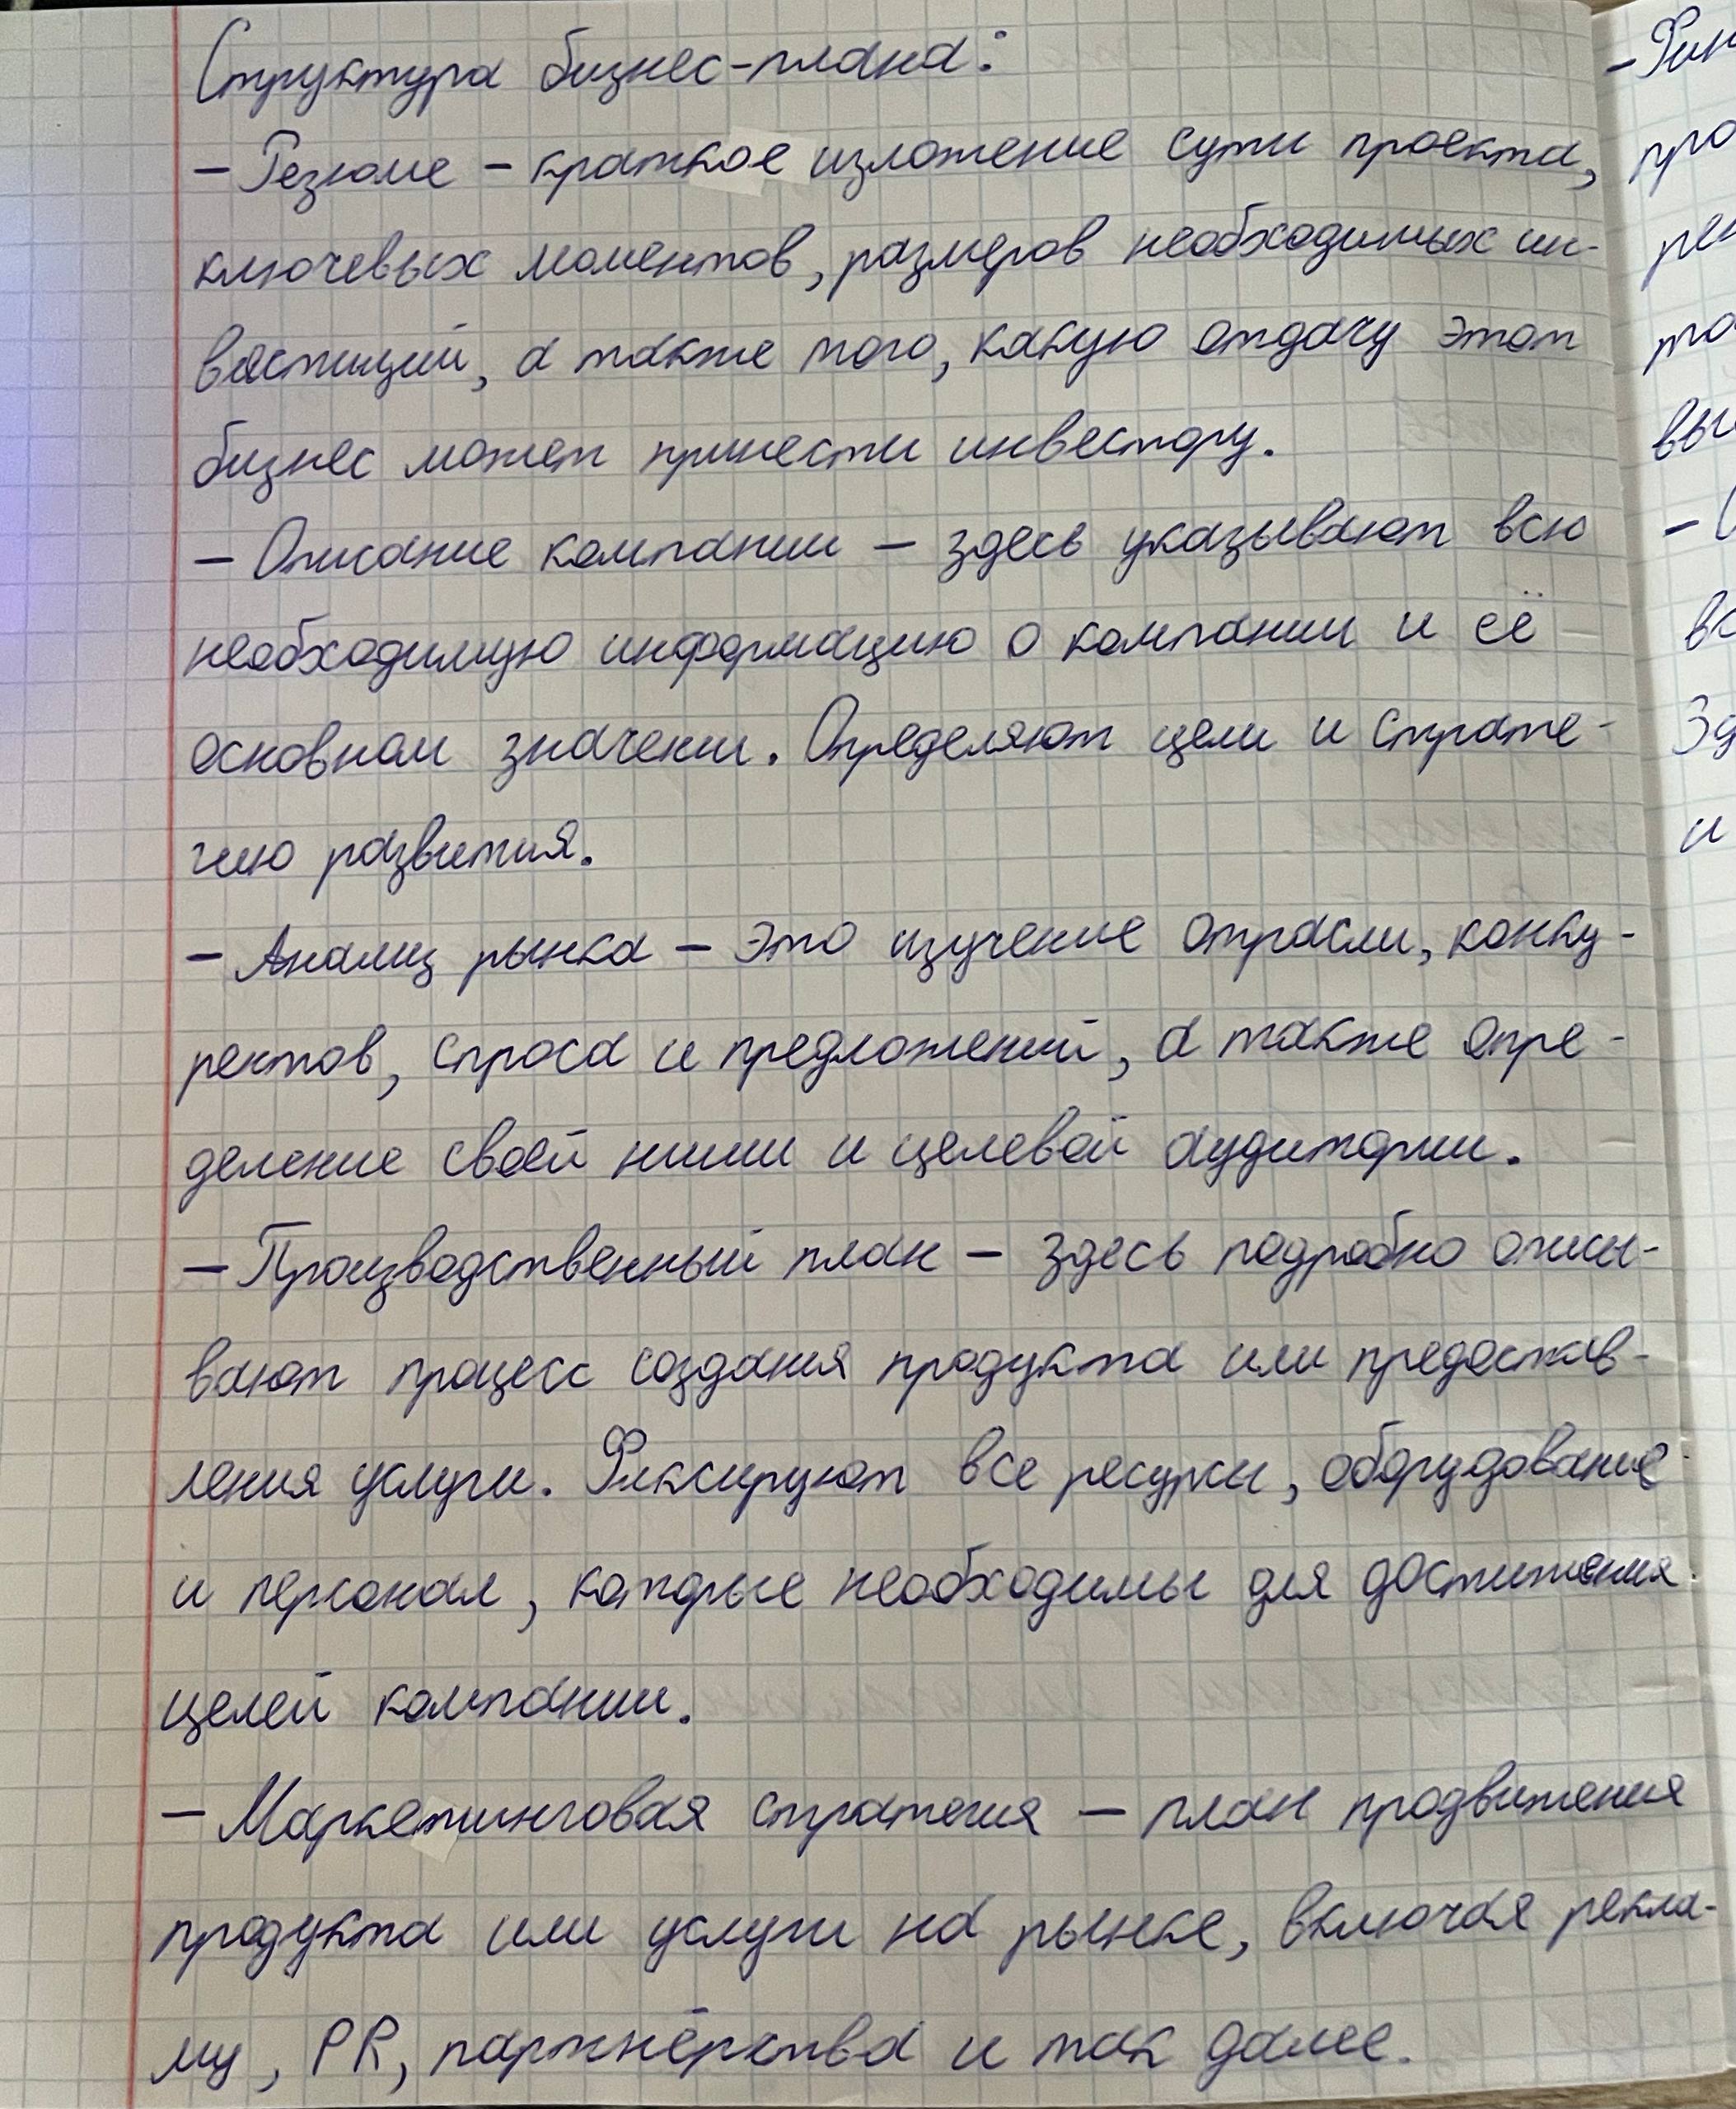 Структура бизнес-плана:
- Резюме - краткое изложение сути проекта,
ключевых моментов, размеров необходимых ин-
вестиций, а также того, какую отдачу этот
бизнес может принести инвестору.
- Описание компании - здесь указывают всю
необходимую информацию о компании и её
основном значении. Определяют цели и страте-
гию развития.
- Анализ рынка - это изучение отрасли, конку-
рентов, спроса и предложений, а также опре-
деление своей ниши и целевой аудитории.
- Производственный план - здесь подробно описы-
вают процесс создания продукта или предостав-
ления услуги. Фиксируют все ресурсы, оборудование
и персонал, которые необходимы для достижения
целей компании.
- Маркетинговая стратегия - план продвижения
продукта или услуги на рынке, включая рекла-
му, PR, партнёрства и так далее.